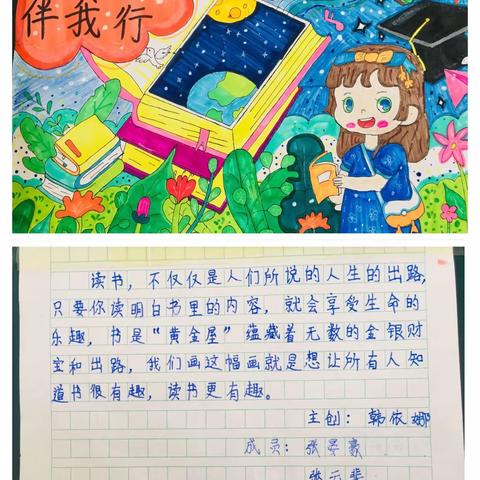 伴我行
读书，不仅仅是人们所说的人生的出路，
只要你读明白书里的内容，就会享受生命的
乐趣，书是“黄金屋”蕴藏着无数的金银财
宝和出路，我们画这幅画就是想让所有人知
道书很有趣，读书更有趣。
主创：韩依娜
成员：张晏豪
张云